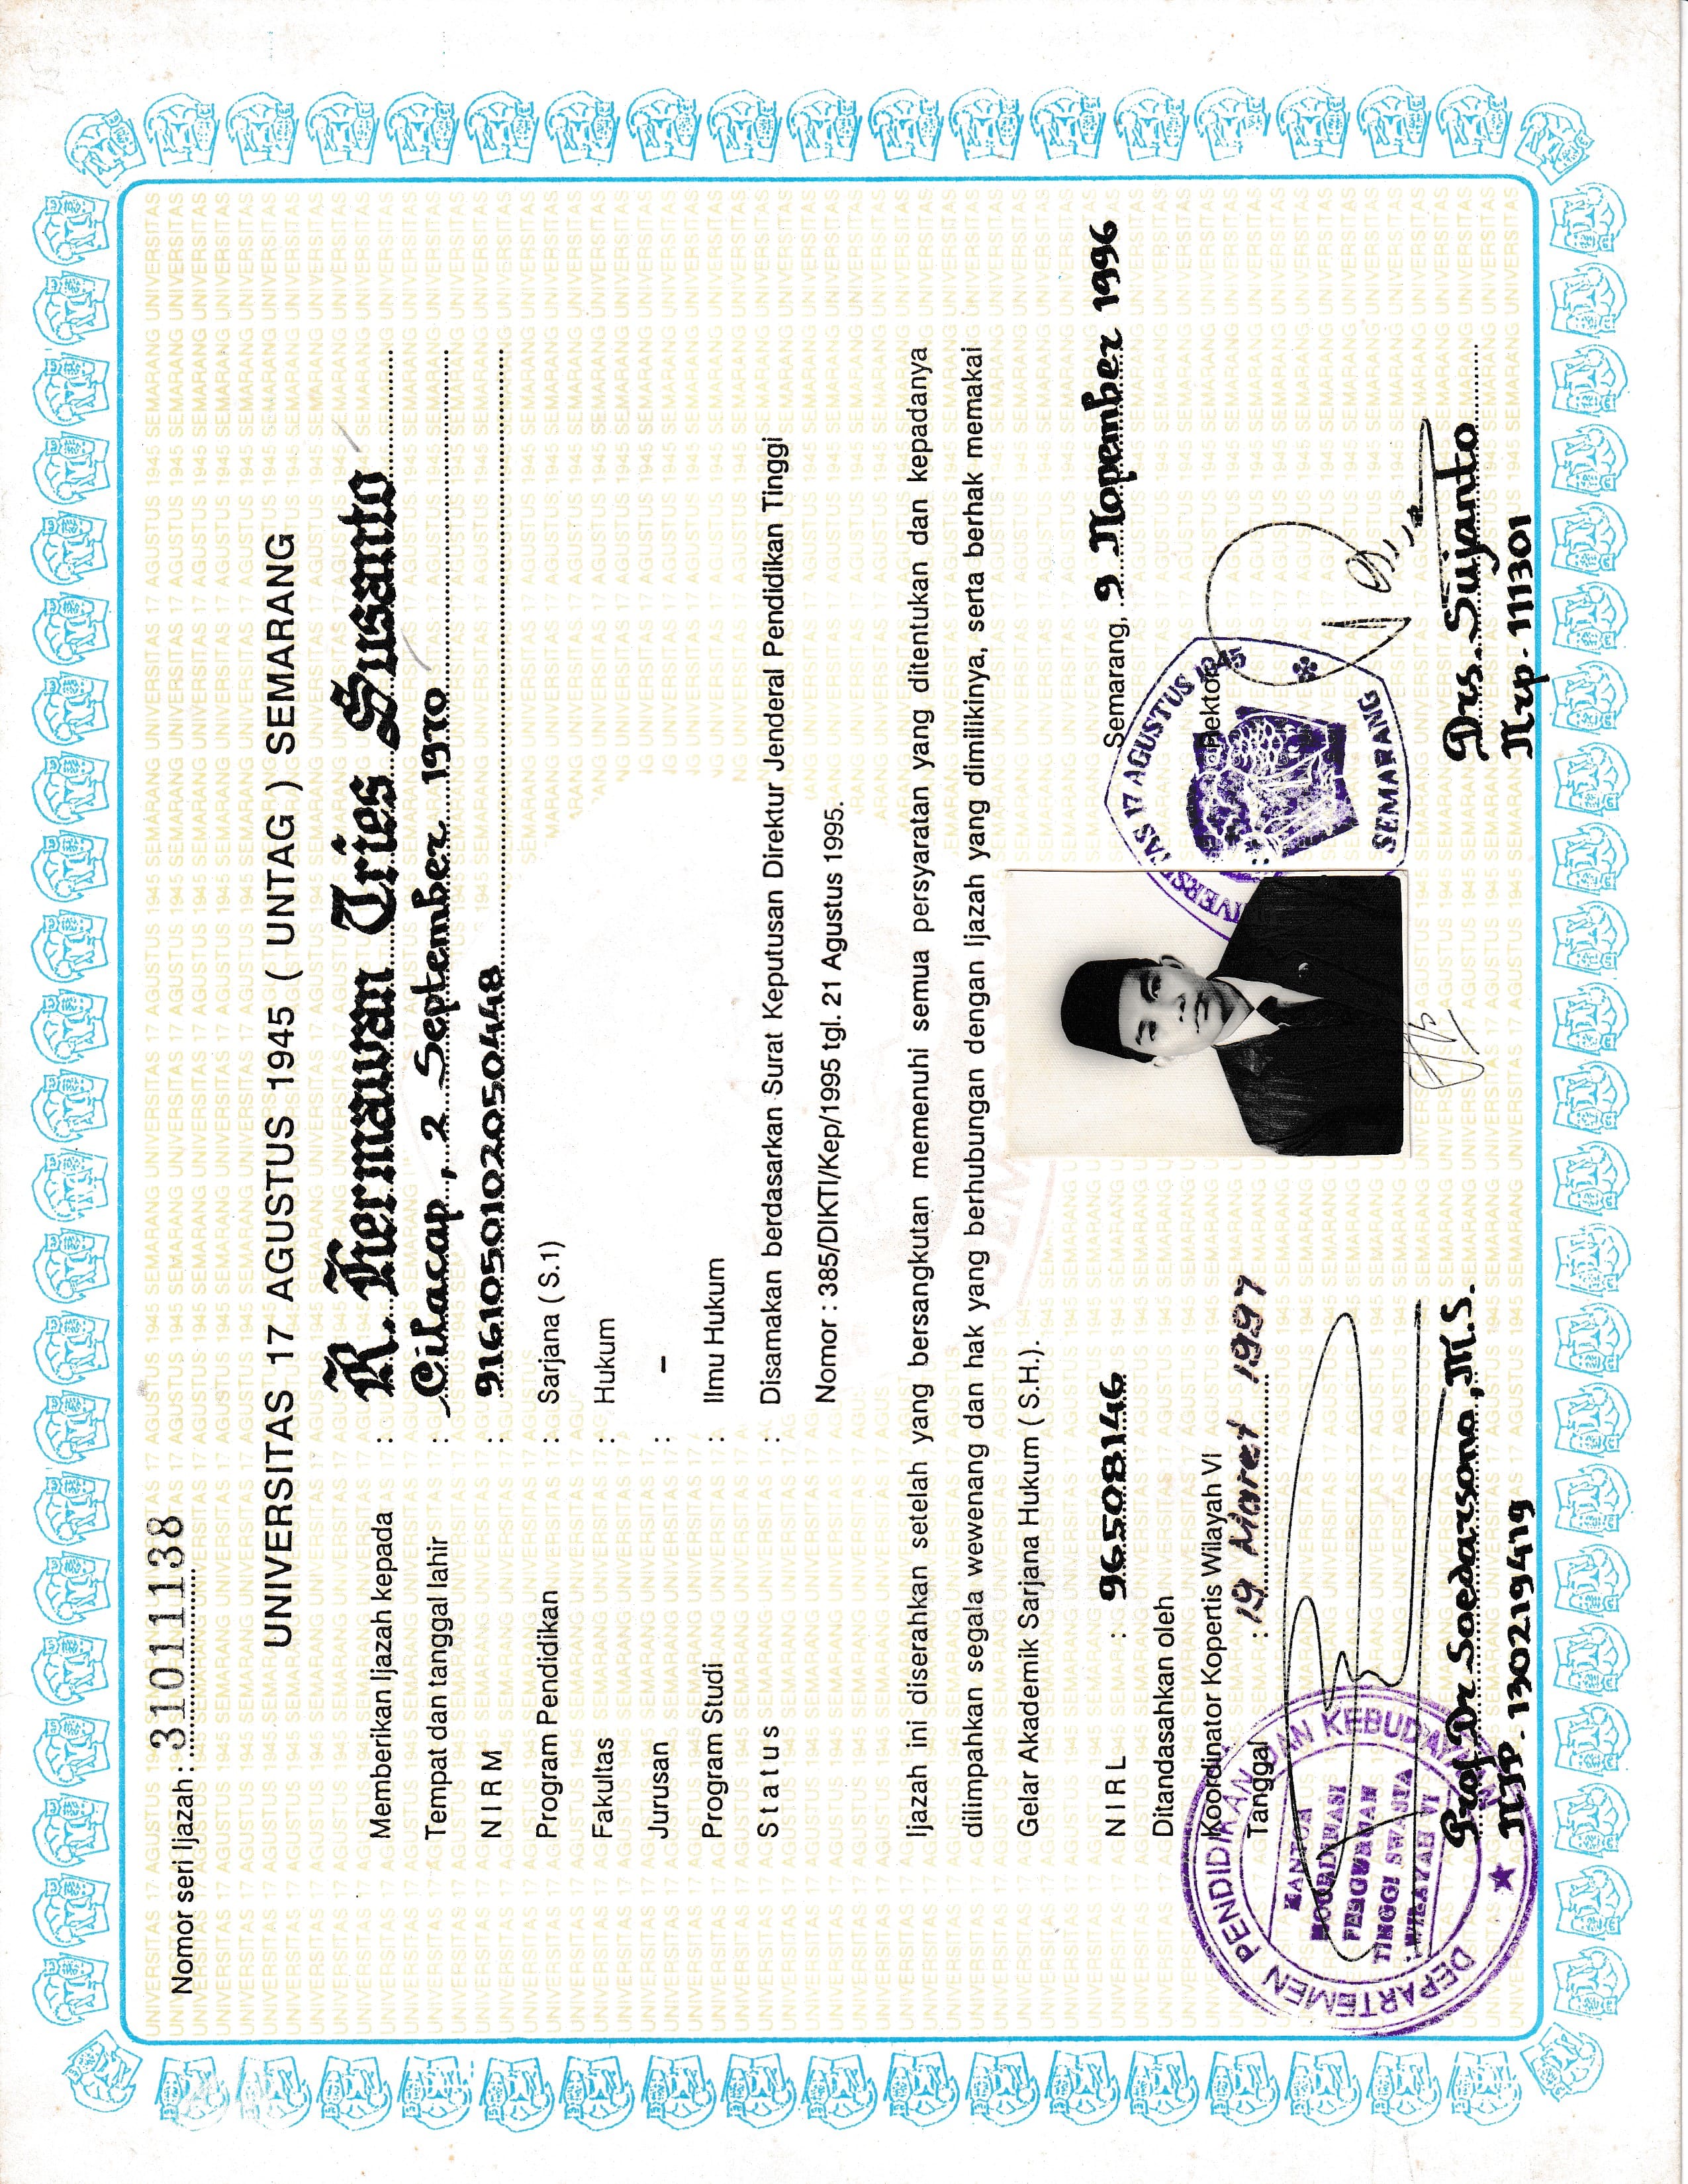 Nomor seri Ijazah : 31011138
UNIVERSITAS 17 AGUSTUS 1945 ( UNTAG ) SEMARANG
Memberikan Ijazah kepada : R. Hermawan Tries Susanto
Tempat dan tanggal lahir : Cilacap, 2 September 1970
N I R M : 916105010205044 8
Program Pendidikan : Sarjana ( S.1)
Fakultas : Hukum
Jurusan : –
Program Studi : Ilmu Hukum
S t a t u s : Disamakan berdasarkan Surat Keputusan Direktur Jenderal Pendidikan Tinggi
Nomor : 385/DIKTI/Kep/1995 tgl. 21 Agustus 1995.
Ijazah ini diserahkan setelah yang bersangkutan memenuhi semua persyaratan yang ditentukan dan kepadanya
dilimpahkan segala wewenang dan hak yang berhubungan dengan Ijazah yang dimilikinya, serta berhak memakai
Gelar Akademik Sarjana Hukum ( S.H.).
N I R L : 96508146
Ditandasahkan oleh
Koordinator Kopertis Wilayah VI
Tanggal : 19 Maret 1997
DEPARTEMEN PENDIDIKAN DAN KEBUDAYAAN
KANTOR
KOORDINASI
PERGURUAN
TINGGI SWASTA
WILAYAH VI
Prof. Dr. Soedarsono, M.S.
NIP. 130219419
Semarang, 9 Nopember 1996
Rektor
UNIVERSITAS 17 AGUSTUS 1945
SEMARANG
Drs. Sujanto
Nrp. 1111301